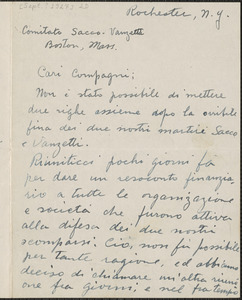 Rochester, N. Y.
Comitato Sacco-Vanzetti
Boston, Mass.
Cari Compagni;
Non è stato possibile di mettere
due righe assieme dopo la orribile
fina dei due nostri martiri Sacco
e Vanzetti.
Riunitici pochi giorni fa
per dare un resoconto finanzia-
rio a tutte le organizzazione
e società che furono attive
alla difesa dei due nostri
scomparsi. Ciò, non fu possibile
per tante ragione, ed abbiamo
deciso di chiamare un'altra riuni
one fra giorni, e nel frattempo